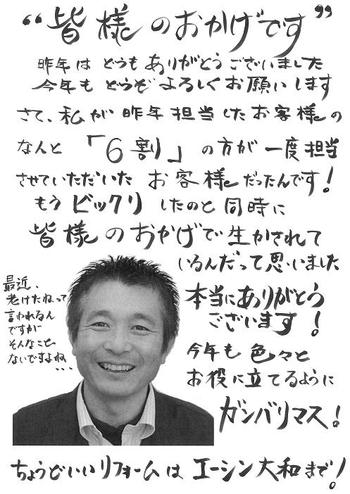 “皆様のおかげです”
昨年は どうも ありがとう ございました
今年も どうぞ よろしく お願いします
さて、私が 昨年 担当したお客様の
なんと 「6割」の方が 一度担当
させていただいた お客様だったんです!
もう ビックリ したのと 同時に
皆様のおかげで生かされて
いるんだって思いました
本当にありがとう
ございます!
今年も 色々と
お役に立てるように
ガンバリマス!
最近、
老けたねって
言われるんで
すが
そんなこと
ないですよね
・・・
ちょうどいいリフォームは エーシン大和まで!